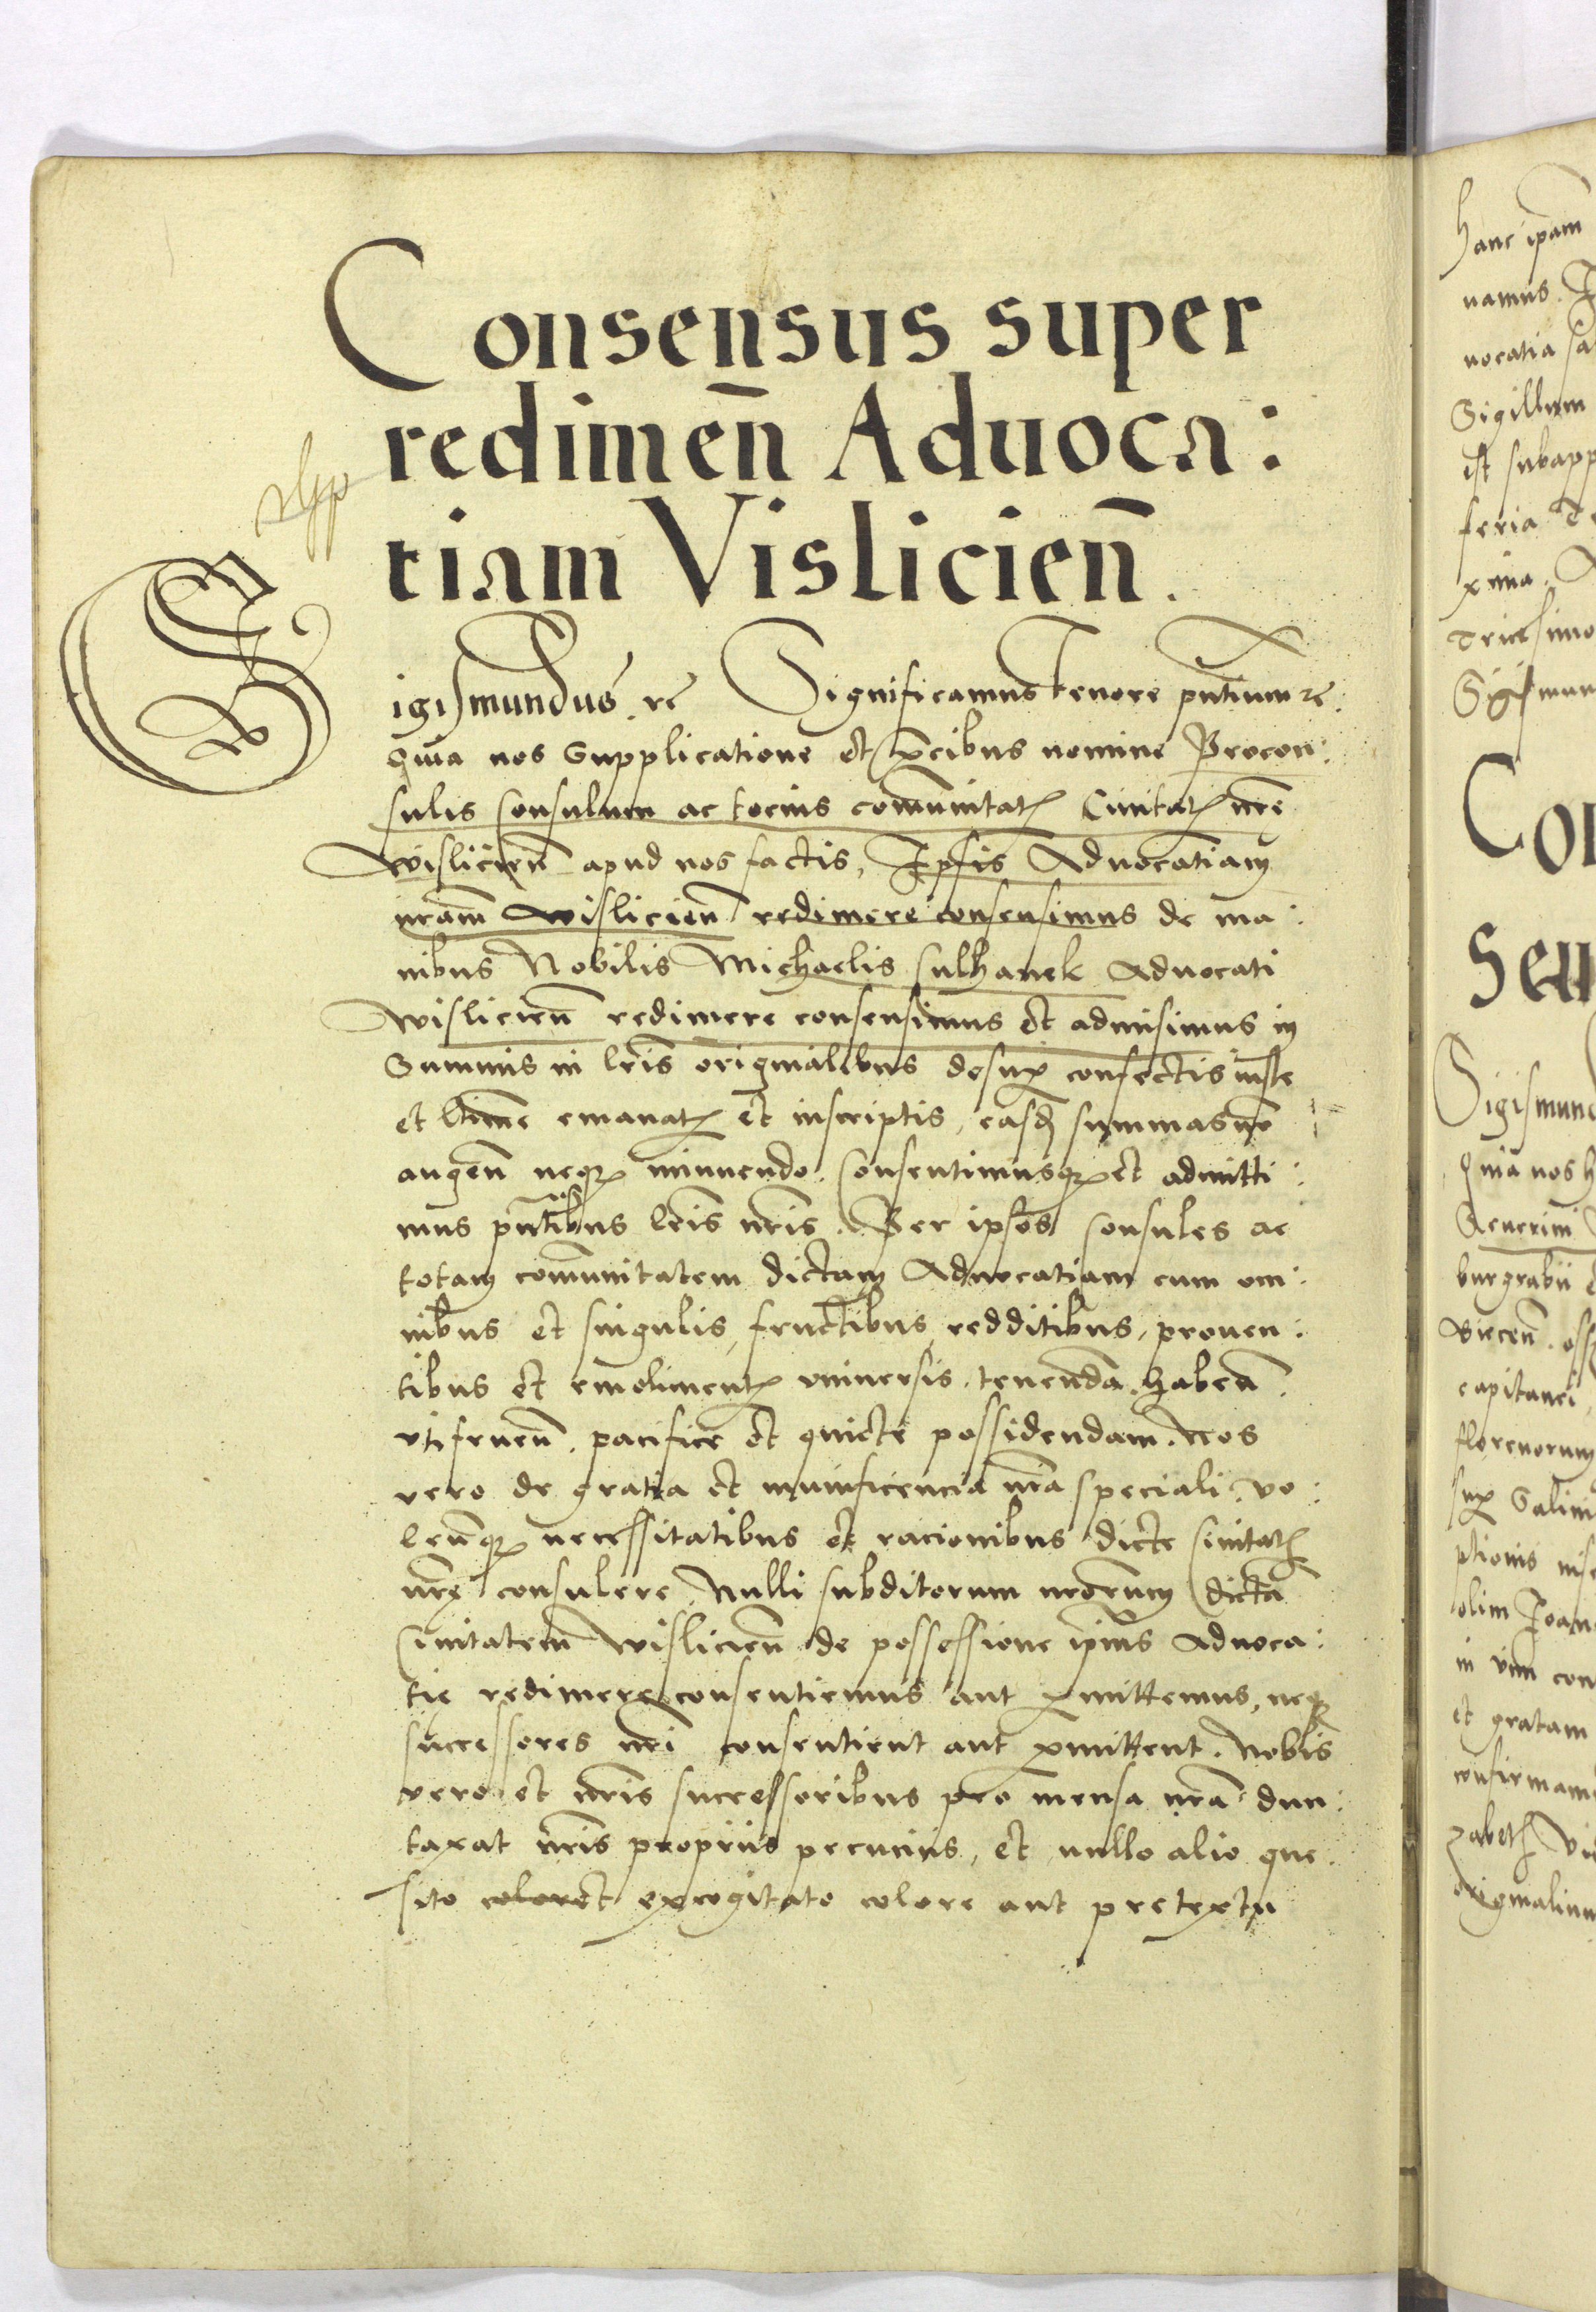 Consensus super
redimen̄ Aduoca:
tiam Vislicien̄.
Sigismundus. rc̄ Significamus tenore pn̄tium rc̄:
Quia nos Supplicatione et p̱cibus nomine Procon:
sulis Consulum ac tocius com̄unitatꝭ Ciuitatꝭ nr̄e
Wislicien̄ apud nos factis, Ipsis Aduocatiam
nr̄am Wislicien̄ redimere consensimus de ma:
nibus Nobilis Michaelis Sulhanek Aduocati
Wislicien̄ redimere consensimus et admisimus in
Summis in lr̄is originalibus desuꝑ confectis iuste
et ltīme emanatꝭ et inscriptis, easdꝫ summas nō
augen̄ neqꝫ minuendo. Consentimusqꝫ et admitti:
mus pn̄tibus lr̄is nr̄is. Per ipsos Consules ac
totam com̄unitatem dictam Aduocatiam cum om:
nibus et singulis, fructibus, redditibus, prouen:
tibus et emolimentꝭ vniuersis. tenendā. haben̄.
vtifruen̄. pacifice et quiete possidendam. Nos
vero de gratia et munificencia nr̄a speciali. vo:
len̄qꝫ necessitatibus et racionibus dicte Ciuitatꝭ
nr̄ę consulere Nulli subditorum nr̄orum dictā
Ciuitatem Wislicien̄ de possessione ip̄ius Aduoca:
tię redimere consentiemus aut ꝑmittemus, neqꝫ
successores nr̄i consentient aut ꝑmittent. Nobis
vero et nr̄is successoribus pro mensa nr̄a dun:
taxat nr̄is propriis pecuniis, et nullo alio que
sito colore et excogitato colore aut pretextu
hanc ip̄am
uamus.
uocatia
Sigillum
est subapp
feria
xima.
Tricesimo
Sigismun
Con
Sen
Sigismund
Quia nos
Seuerini
burgrabii
Biecen̄.
capitanei
florenorum
suꝑ Salin
ptionis
olim Joan
in vim con
et gratam
confirmam
zabetꝫ
originalium